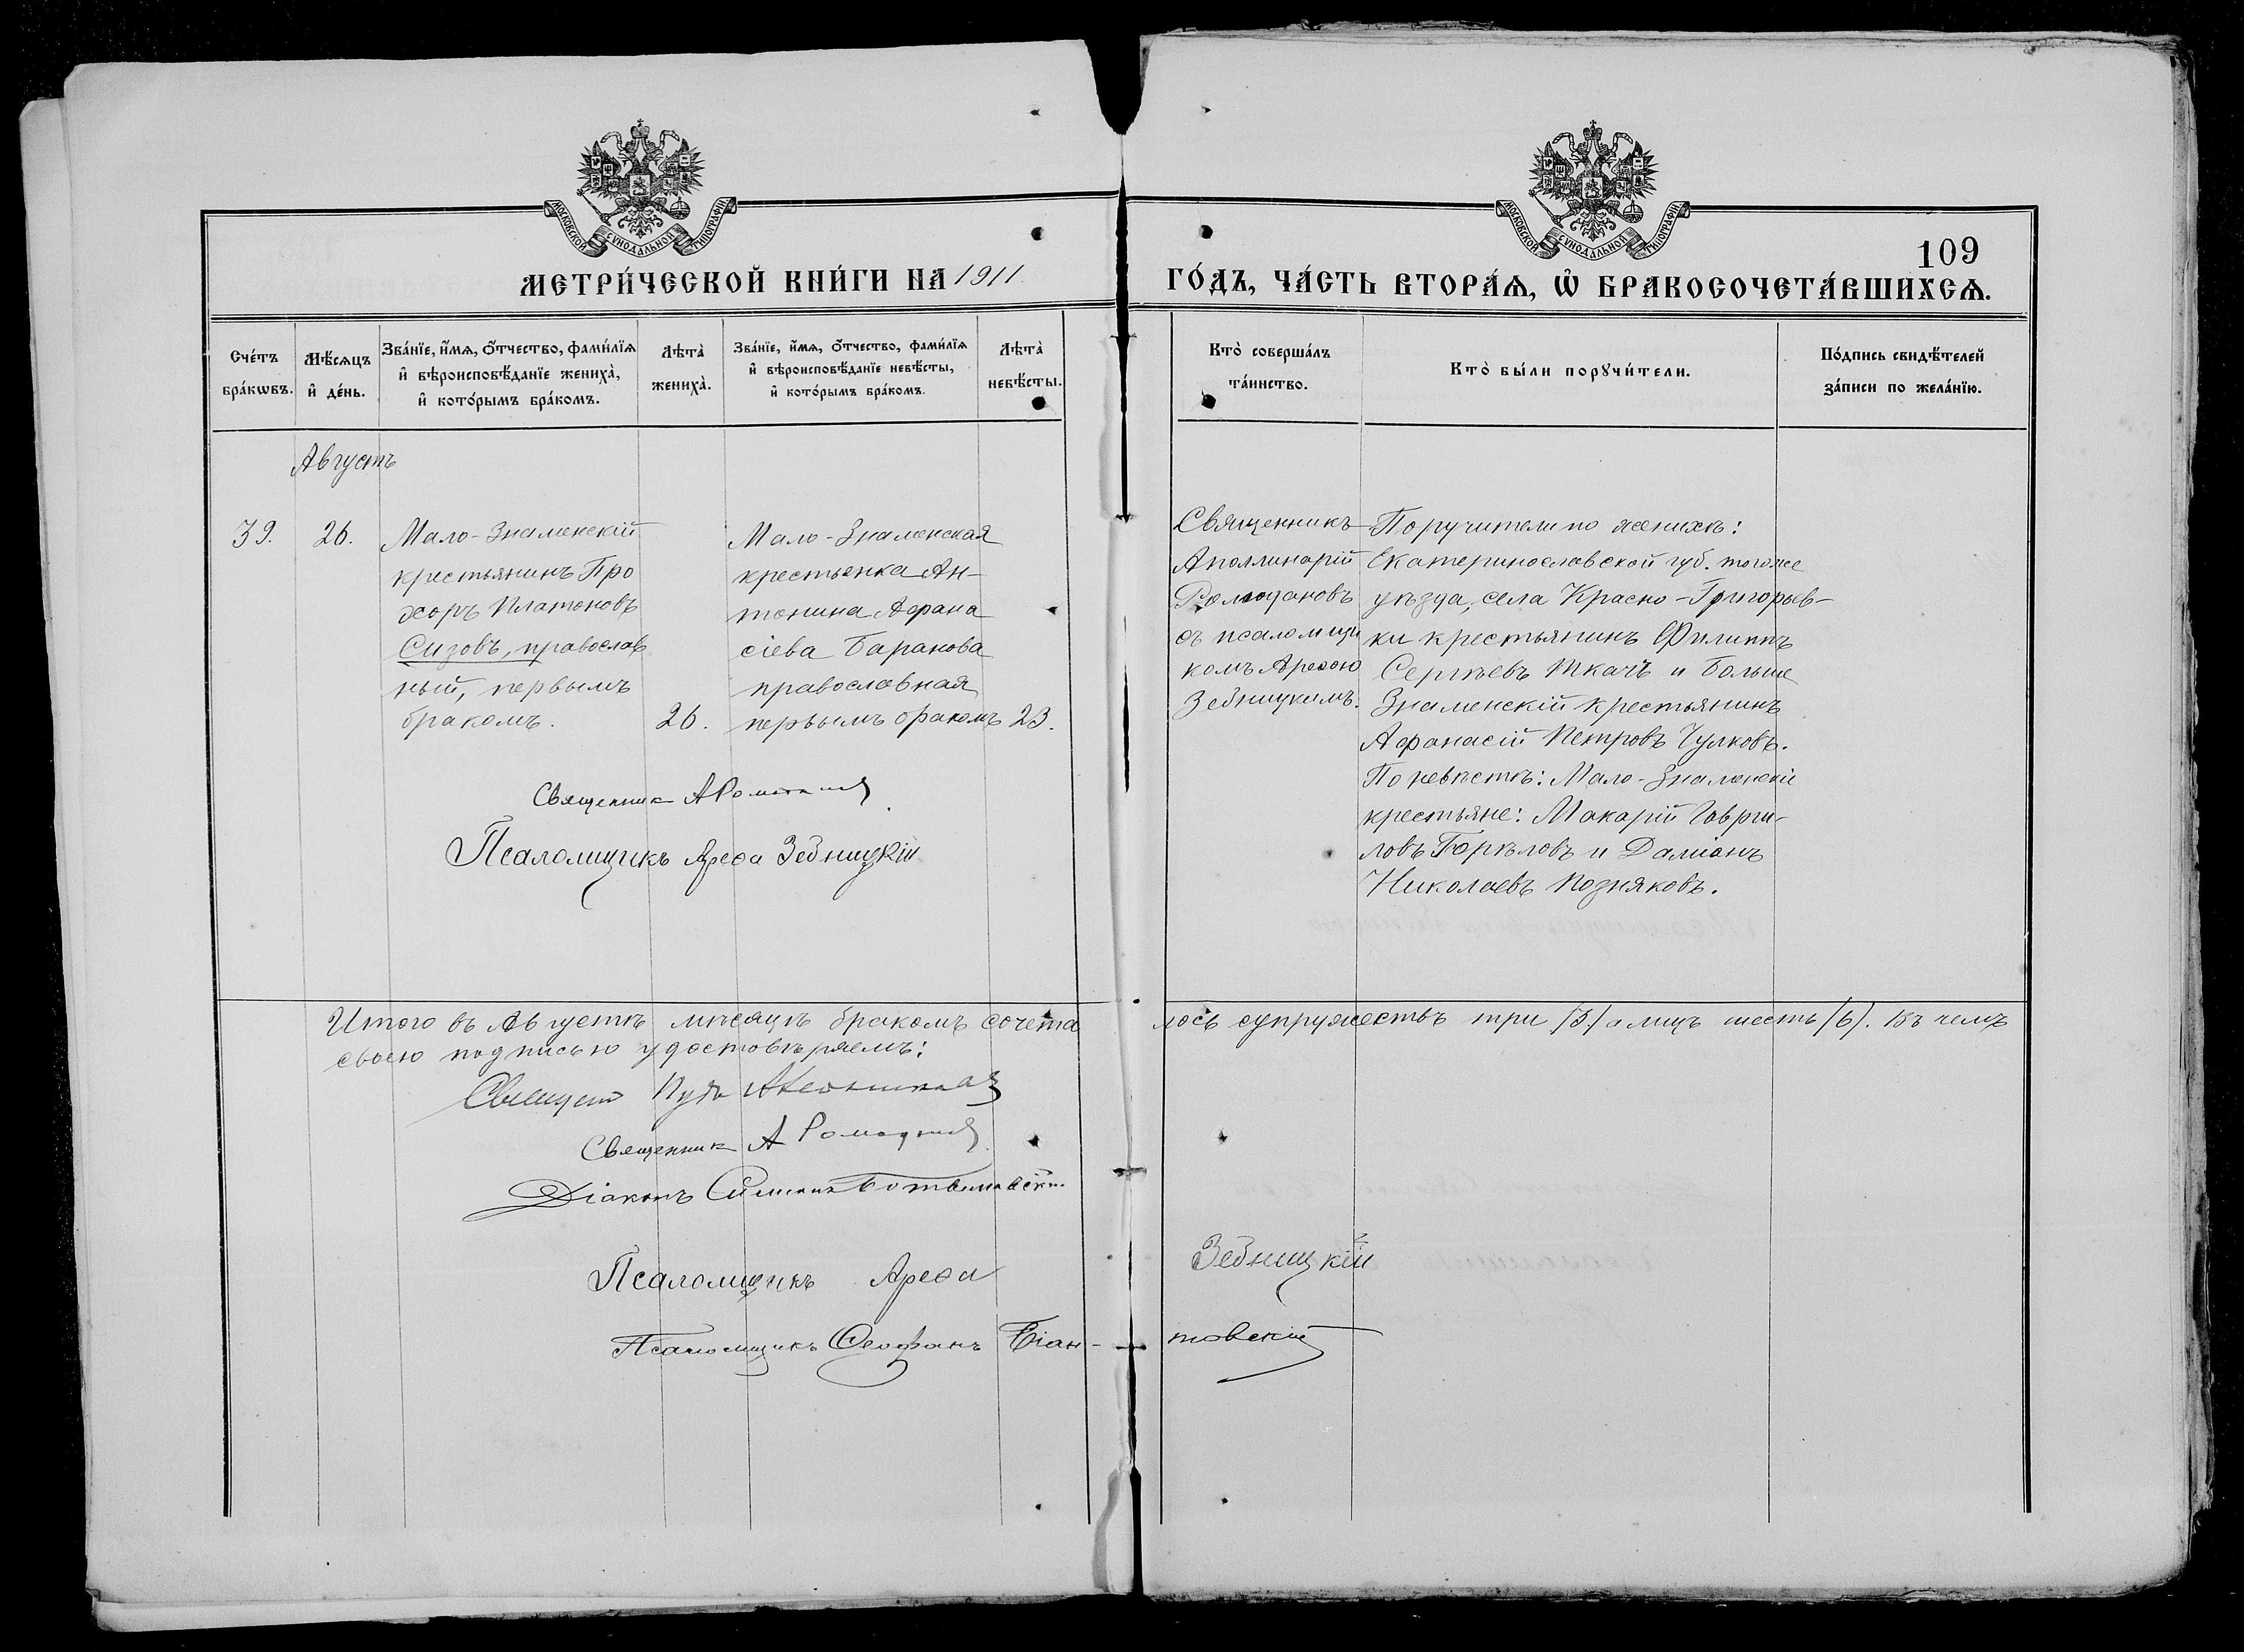 МОСКОВСКОЙ СѴНОДАЛЬНОЙ ТИПОГРАФІИ
МОСКОВСКОЙ СѴНОДАЛЬНОЙ ТИПОГРАФІИ
109
МЕТРИ́ЧЕСКОЙ КНИ́ГИ НА 1911
ГО́ДЪ, ЧА́СТЬ ВТОРА́Ѧ, Ѡ҆ БРАКОСОЧЕТА́ВШИХСѦ.
Сче́тъ
бра́кѡвъ.
Мѣ́сѧцъ
и҆ де́нь.
Зва́нїе, и҆́мѧ, ѻ҆́тчество, фами́лїѧ
и҆ вѣроисповѣ́данїе жениха̀,
и҆ кото́рымъ бра́комъ.
Лѣта̀
жениха̀.
Зва́нїе, и҆́мѧ, ѻ҆́тчество, фами́лїѧ
и҆ вѣроисповѣ́данїе невѣ́сты,
и҆ кото́рымъ бра́комъ.
Лѣта̀
невѣ́сты.
Кто̀ соверша́лъ
та́инство.
Кто̀ бы́ли порꙋчи́тели.
По́дпись свидѣ́телей
за́писи по жела́нїю.
Августъ
39.
26.
Мало-Знаменскій
крестьянинъ Про
хоръ Платоновъ
Сизовъ, православ
ный, первымъ
бракомъ.
26.
Мало-Знаменская
крестьянка Ан-
тонина Афана
сіева Баранова
православная
первымъ бракомъ
23.
Священникъ
Аполлинарій
Ромодановъ
съ псаломщи
комъ Арефою
Зебницкимъ.
Поручители по женихѣ:
Екатеринославской губ. тогоже
уѣзда, села Красно-Григорьев-
ки крестьянинъ Филиппъ
Сергѣевъ Ткачъ и Больше
Знаменскій крестьянинъ
Афанасій Петровъ Чулковъ.
По невѣстѣ: Мало-Знаменскіе
крестьяне: Макарій Гаври-
ловъ Горѣловъ и Даміанъ
Николаевъ Позняковъ.
Священникъ А Ромодановъ
Псаломщикъ Арефа Зебницкій
Итого въ Августѣ мѣсяцѣ бракомъ сочета
лось супружествъ три /3/ а лицъ шесть /6/. Въ чемъ
своею подписью удостовѣряемъ:
Священ
Священникъ А Ромодановъ
Діаконъ Симеонъ
Псаломщикъ Арефа Зебницкій
Псаломщикъ Феофанъ Біан-
товскій